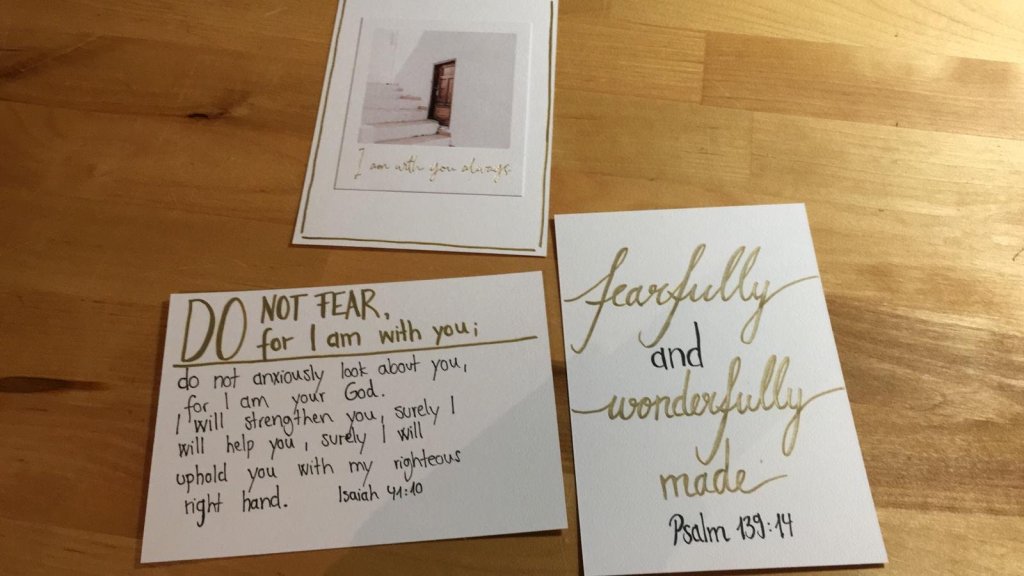 I am with you always
DO NOT FEAR,
for I am with you;
do not anxiously look about you,
for I am your God.
I will strengthen you, surely I
will help you, surely I will
uphold you with my righteous
right hand. Isaiah 41:10
fearfully
and
wonderfully
made
Psalm 139:14